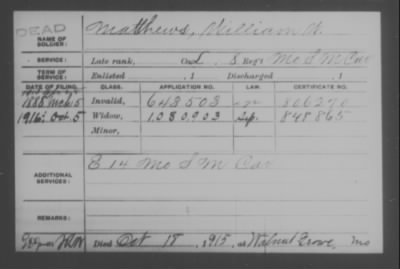 DEAD
NAME OF SOLDIER: Matthews, William H.
SERVICE: Late rank, Co. L. 8 Reg't Mo S M Cav
TERM OF SERVICE: Enlisted , 1 Discharged , 1
DATE OF FILING. CLASS. APPLICATION NO. LAW. CERTIFICATE NO.
1888 Mch 15 Invalid, 643503 806270
1916 Oct. 5 Widow, 1080903 Sep. 848865
Minor,
ADDITIONAL SERVICES: E 14 Mo S M Cav
REMARKS:
Died Oct 18, 1915, at Walnut Grove, Mo